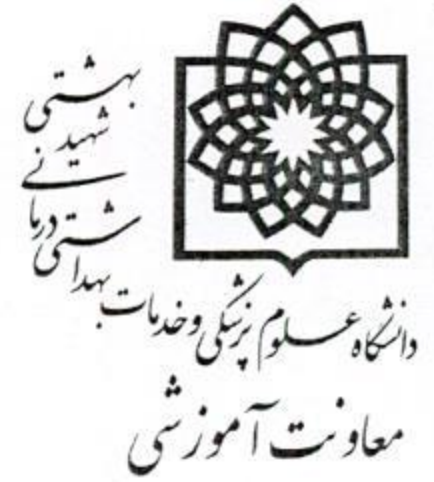 دانشگاه علوم پزشکی و خدمات بهداشتی درمانی شهید بهشتی
معاونت آموزشی